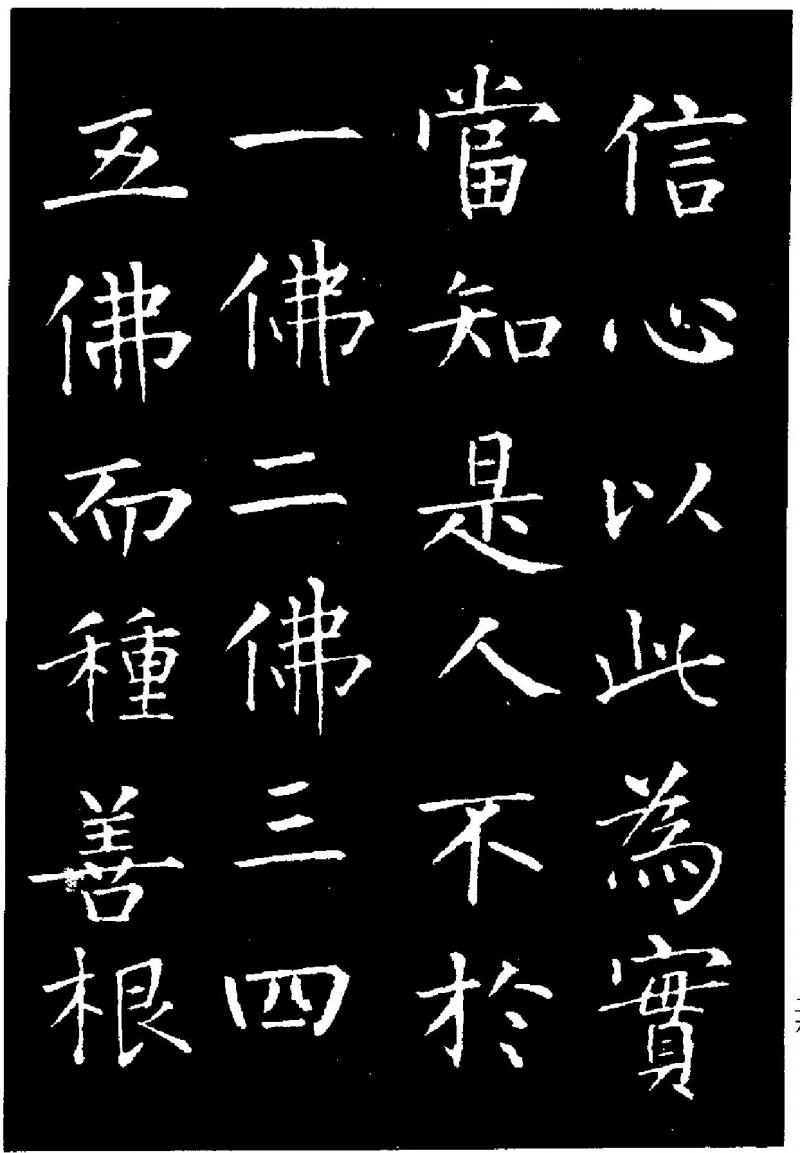 信心以此為實
當知是人不於
一佛二佛三四
五佛而種善根